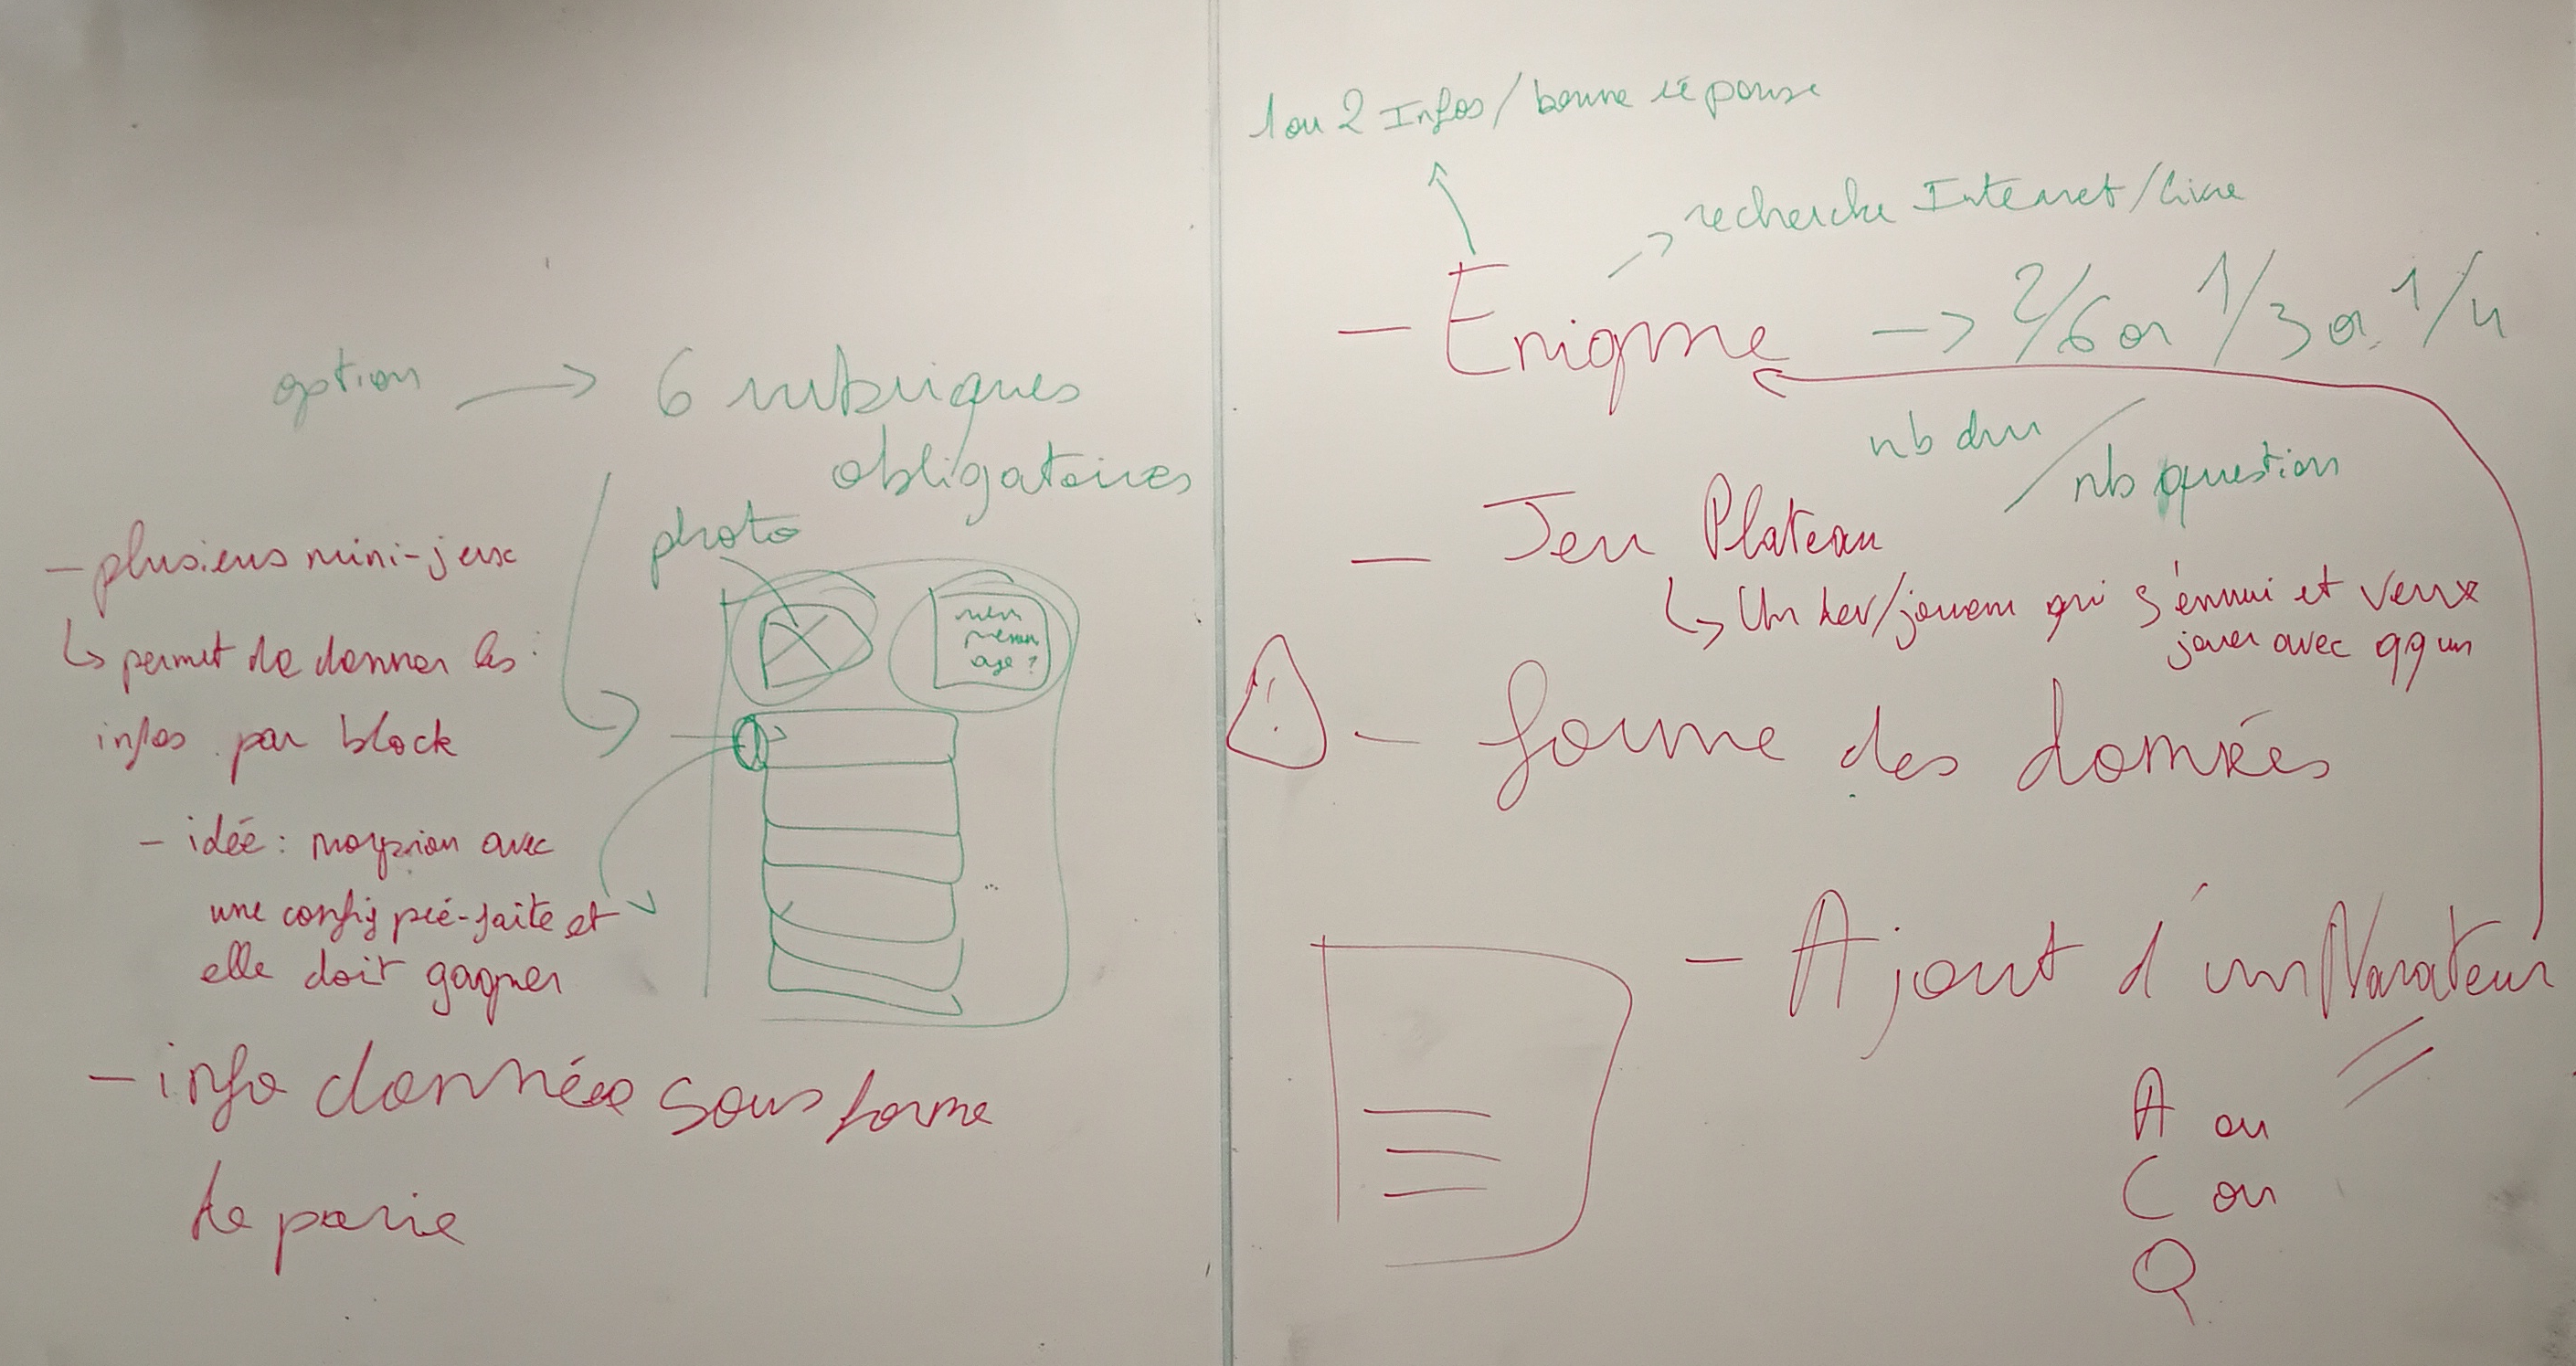 option → 6 rubriques
obligatoires
photo
nom
prénom
age ?
- plusieurs mini-jeux
↳ permet de donner les :
infos par block
- idée : morpion avec
une config pré-faite et
elle doit gagner
- info données sous forme
de
1 ou 2 Infos / bonne réponse
recherche Internet / livre
- Enigme → 2/6 or 1/3 or 1/4
nb
nb question
- Jeu Plateau
↳ Un /joueur qui s'ennui et veux
jouer avec qq un
! - forme des données
- Ajout d'un Narateur
A ou
C ou
Q